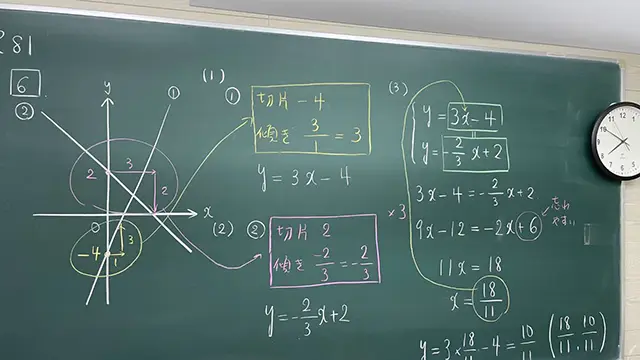 281
6
②
①
y
x
O
2
3
2
-4
3
1
(1)
①
切片 -4
傾き 3/1 = 3
y = 3x - 4
(2) ②
切片 2
傾き -2/3 = -2/3
y = -2/3 x + 2
(3)
y = 3x - 4
y = -2/3 x + 2
3x - 4 = -2/3 x + 2
×3
9x - 12 = -2x + 6
忘れ
やすい
11x = 18
x = 18/11
y = 3 × 18/11 - 4 = 10/11 (18/11, 10/11)
12
1
2
3
4
5
6
7
8
9
10
11